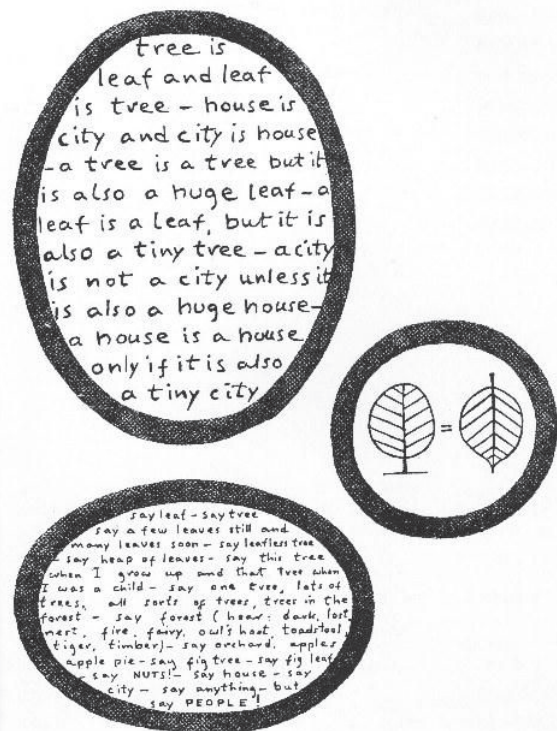 tree is
leaf and leaf
is tree – house is
city and city is house
– a tree is a tree but it
is also a huge leaf – a
leaf is a leaf, but it is
also a tiny tree – a city
is not a city unless it
is also a huge house –
a house is a house
only if it is also
a tiny city
=
say leaf – say tree
say a few leaves still and
many leaves soon – say leafless tree
– say heap of leaves – say this tree
when I grow up and that tree when
I was a child – say one tree, lots of
trees, all sorts of trees, trees in the
forest – say forest (hear: dark, lost,
nest, fire, fairy, owl's hoot, toadstool,
tiger, timber) – say orchard, apples
apple pie – say fig tree – say fig leaf
– say NUTS! – say house – say
city – say anything – but
say PEOPLE!